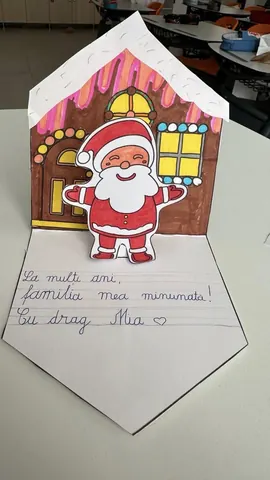 La multi ani,
familia mea minunata!
Cu drag Mia ♡